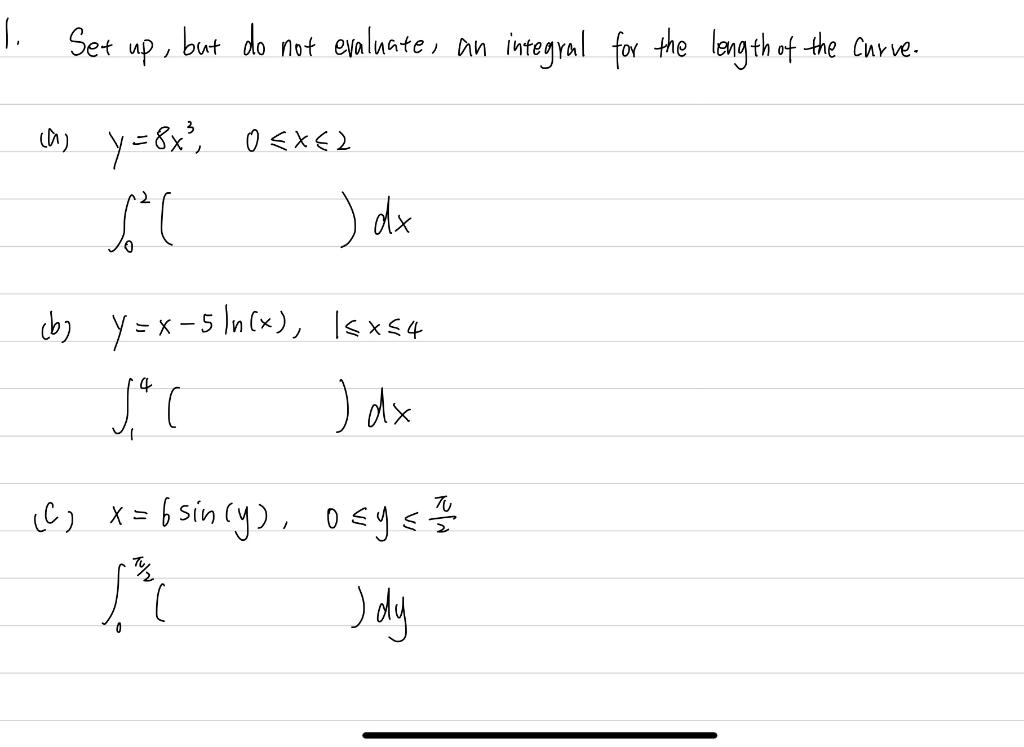 1. Set up, but do not evaluate, an integral for the length of the curve.
(a) y = 8x³, 0 ≤ x ≤ 2
∫₀² ( ) dx
(b) y = x - 5 ln(x), 1 ≤ x ≤ 4
∫₁⁴ ( ) dx
(c) x = 6 sin(y), 0 ≤ y ≤ π/2
∫₀^(π/2) ( ) dy